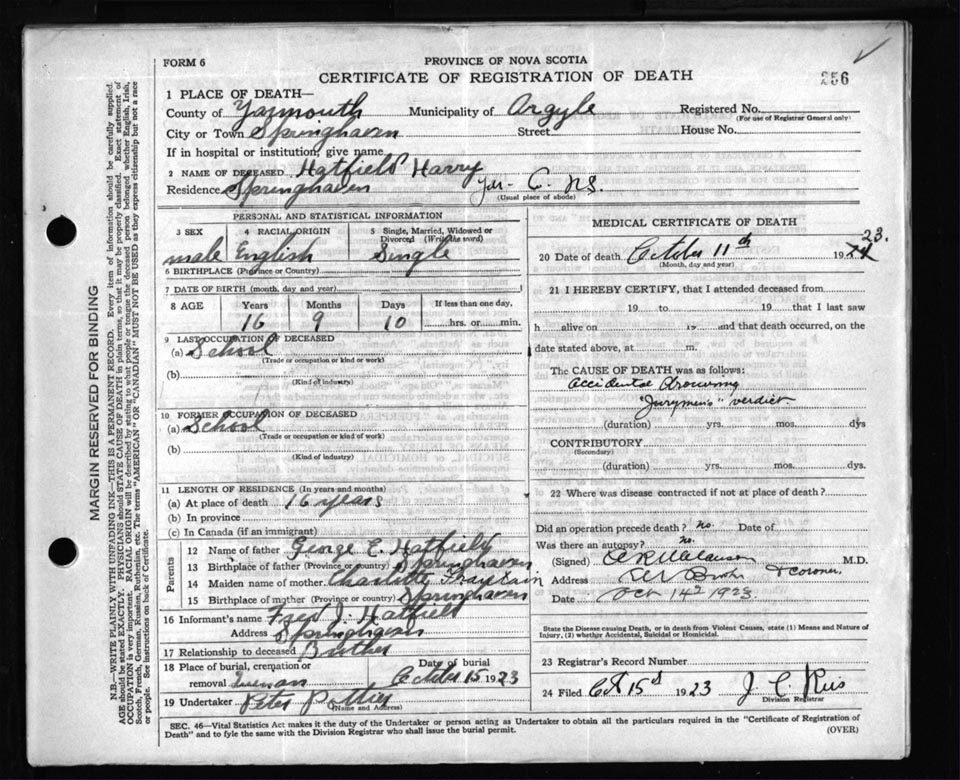 FORM 6
PROVINCE OF NOVA SCOTIA
CERTIFICATE OF REGISTRATION OF DEATH
256
1 PLACE OF DEATH—
County of Yarmouth Municipality of Argyle Registered No.
(For use of Registrar General only)
City or Town Springhaven Street House No.
If in hospital or institution, give name
2 NAME OF DECEASED Hatfield Harry
Residence Springhaven Yar. C. N.S.
(Usual place of abode)
PERSONAL AND STATISTICAL INFORMATION
3 SEX 4 RACIAL ORIGIN 5 Single, Married, Widowed or Divorced (Write the word)
male English Single
6 BIRTHPLACE (Province or Country)
7 DATE OF BIRTH (month, day and year)
8 AGE Years Months Days If less than one day,
16 9 10 hrs. or min.
9 LAST OCCUPATION OF DECEASED
(a) School
(Trade or occupation or kind or work)
(b)
(Kind of industry)
10 FORMER OCCUPATION OF DECEASED
(a) School
(Trade or occupation or kind of work)
(b)
(Kind of industry)
11 LENGTH OF RESIDENCE (In years and months)
(a) At place of death 16 years
(b) In province
(c) In Canada (if an immigrant)
Parents
12 Name of father George E. Hatfield
13 Birthplace of father (Province or country) Springhaven
14 Maiden name of mother Charlotte
15 Birthplace of mother (Province or country) Springhaven
16 Informant's name Fred J. Hatfield
Address Springhaven
17 Relationship to deceased Brother
18 Place of burial, cremation or Date of burial
removal October 15 1923
19 Undertaker Peter Pottier
(Name and Address)
MEDICAL CERTIFICATE OF DEATH
23.
20 Date of death October 11th 1924
(Month, day and year)
21 I HEREBY CERTIFY, that I attended deceased from
19 to 19 that I last saw
h alive on 19 and that death occurred, on
date stated above, at m.
The CAUSE OF DEATH was as follows:
Accidental Drowning
"Jurymen's" verdict
(duration) yrs. mos. dys
CONTRIBUTORY
(Secondary)
(duration) yrs. mos. dys.
22 Where was disease contracted if not at place of death?
Did an operation precede death? no. Date of
Was there an autopsy? no.
(Signed) M.D.
& coroner,
Address
Date Oct 14th 1923
State the Disease causing Death, or in death from Violent Causes, state (1) Means and Nature of
Injury, (2) whether Accidental, Suicidal or Homicidal.
23 Registrar's Record Number
24 Filed Oct 15th 1923 J. C.
Division Registrar
SEC. 46—Vital Statistics Act makes it the duty of the Undertaker or person acting as Undertaker to obtain all the particulars required in the "Certificate of Registration of
Death" and to fyle the same with the Division Registrar who shall issue the burial permit.
(OVER)
MARGIN RESERVED FOR BINDING
N.B.—WRITE PLAINLY WITH UNFADING INK—THIS IS A PERMANENT RECORD. Every item of information should be carefully supplied.
AGE should be stated EXACTLY. PHYSICIANS should STATE CAUSE OF DEATH in plain terms, so that it may be properly classified. Exact statement of
OCCUPATION is very important. RACIAL ORIGIN will be described by stating to what people or tongue the deceased person belonged, whether English, Irish,
Scotch, French, German, Russian, Ruthenian, etc. The terms "AMERICAN" or "CANADIAN" MUST NOT BE USED as they express citizenship but not a race
or people. See instructions on back of Certificate.